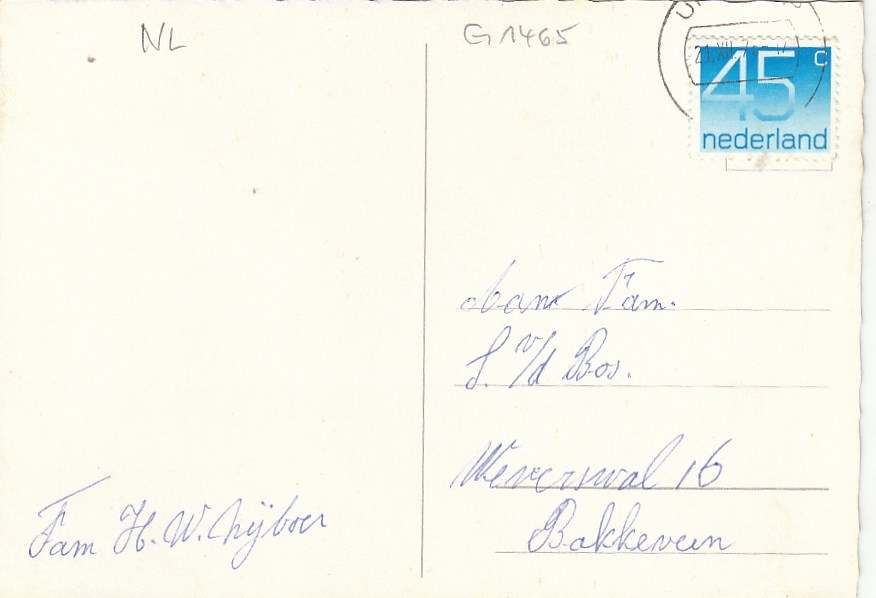 NL
G1465
21.XII.7
45 c
nederland
Aan Fam.
S. v/d Bos.
Weverswal 16
Bakkeveen
Fam H. W. Nijboer